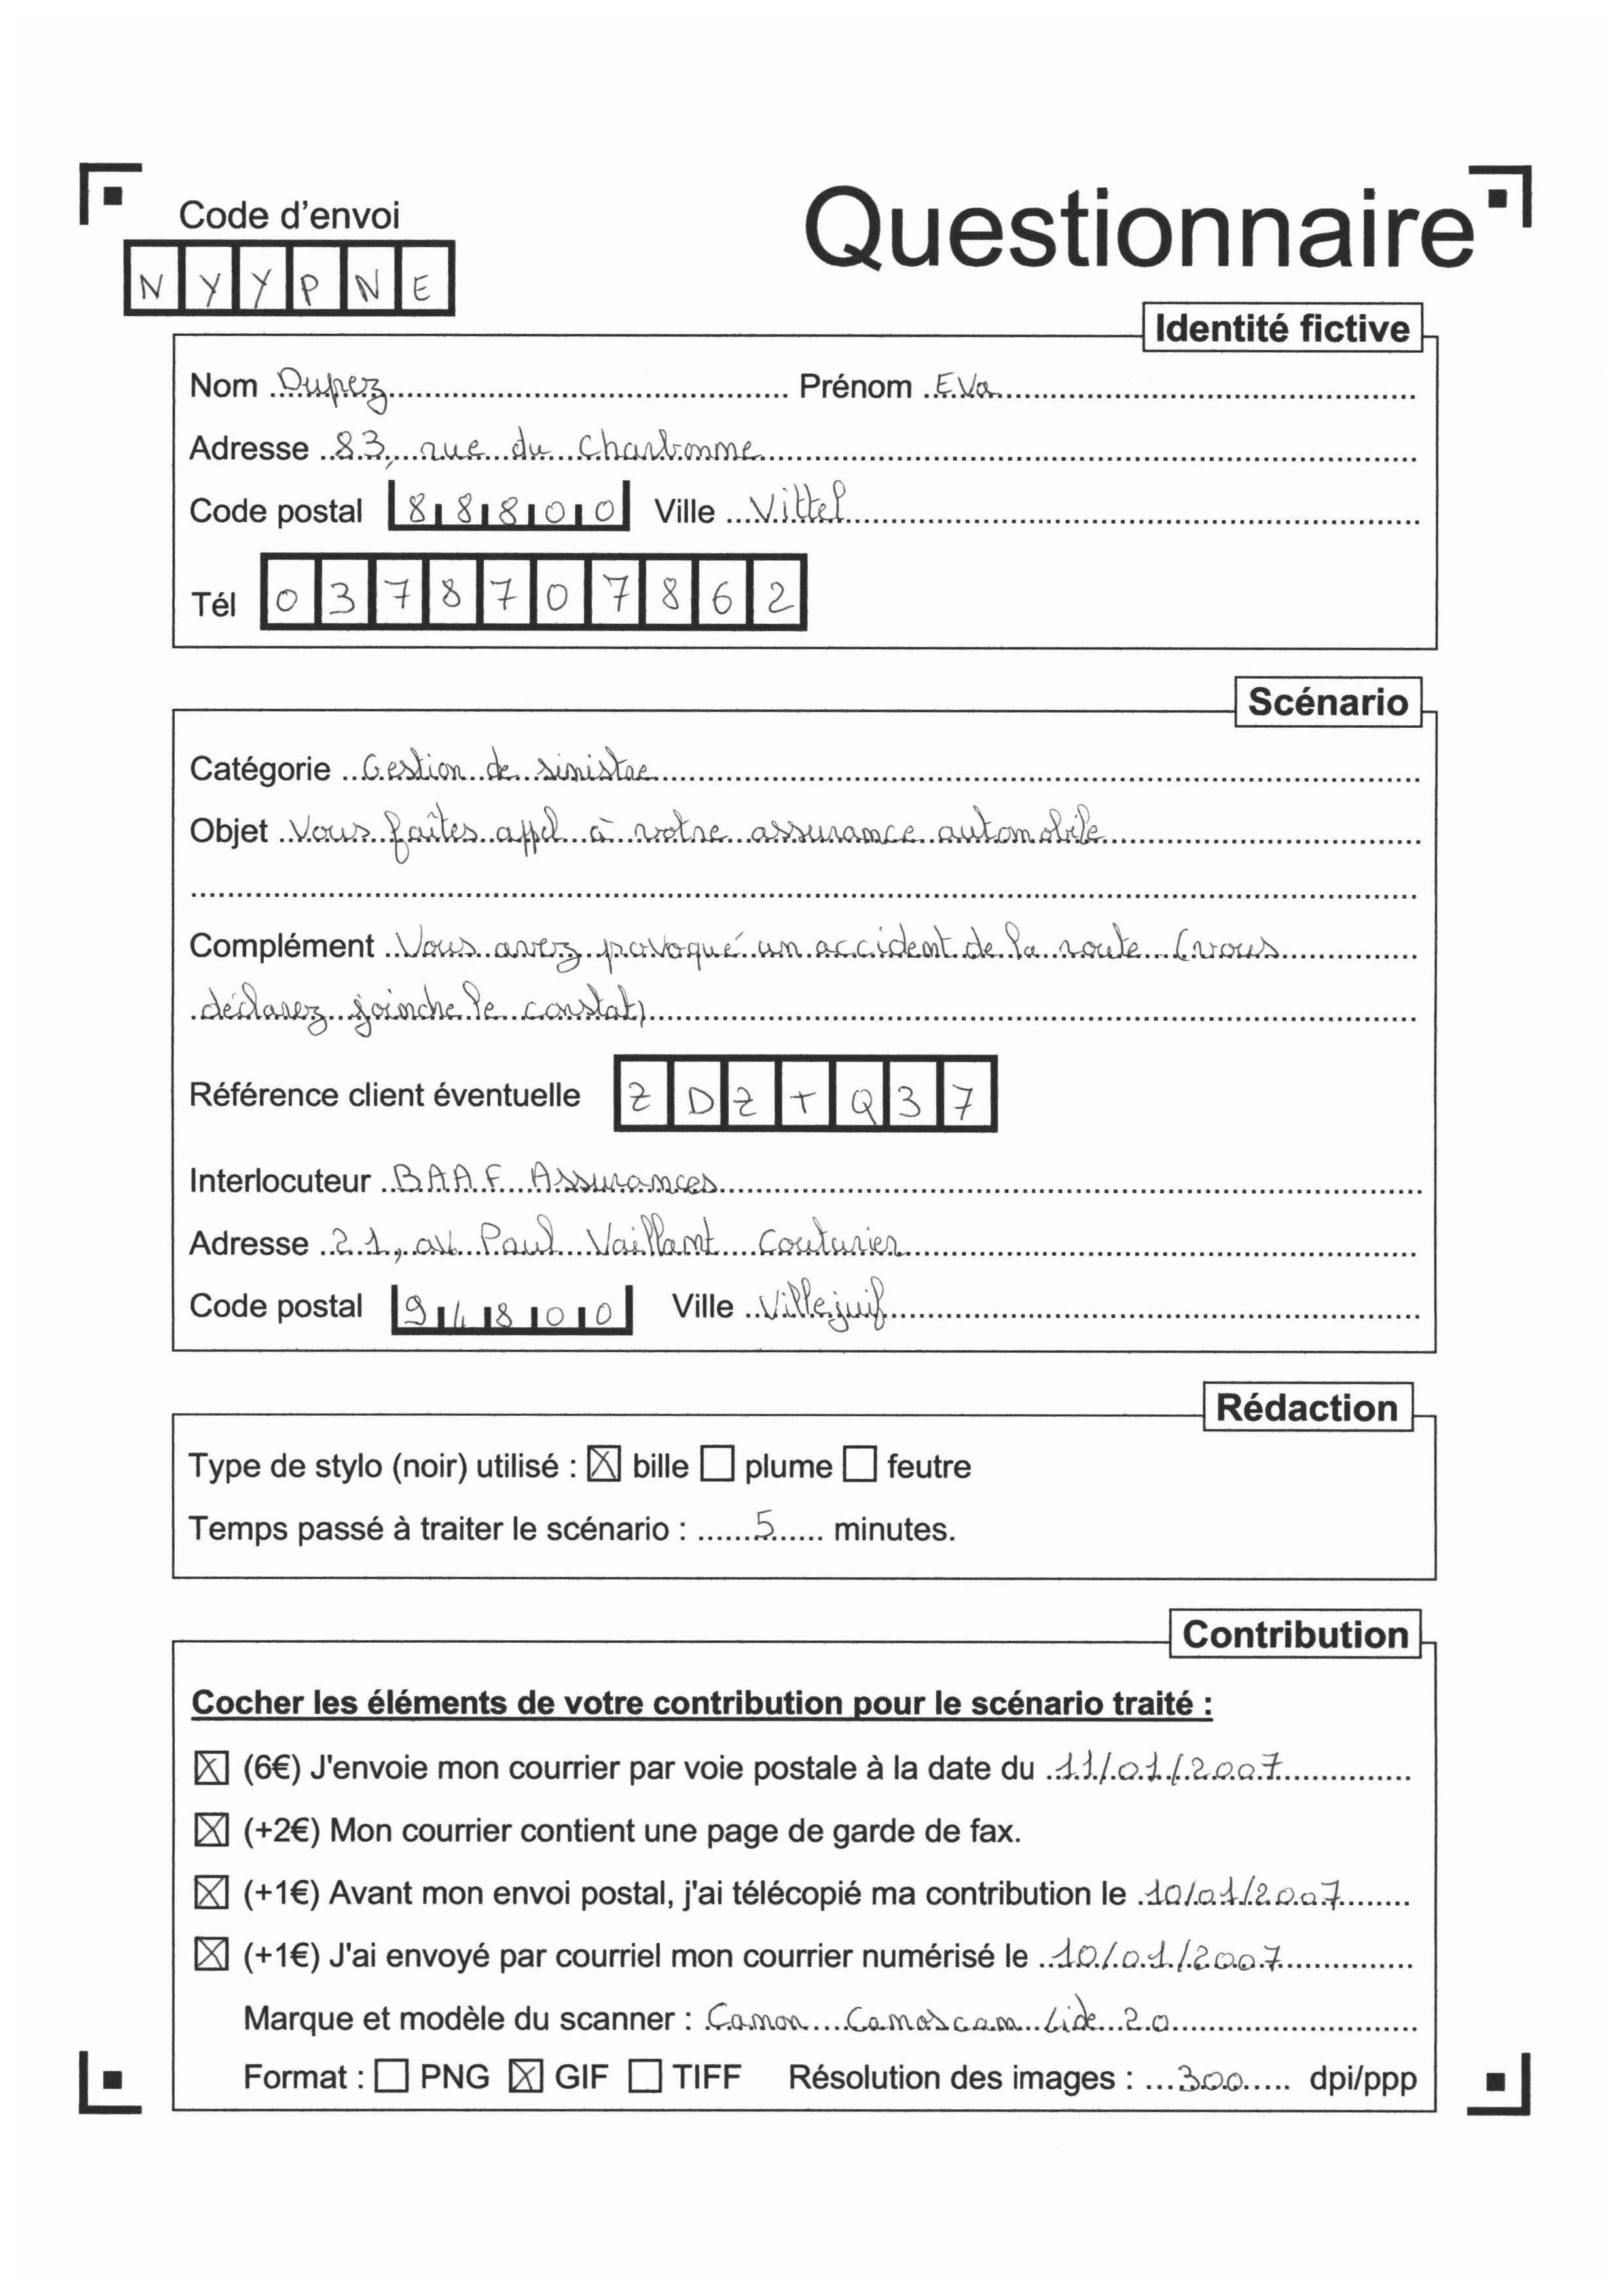 Code d'envoi
Questionnaire
NYYPNE
Identité fictive
Nom Dupez Prénom EVa
Adresse 83, rue du Charbonne
Code postal 88800 Ville Vittel
Tél 0378707862
Scénario
Catégorie Gestion de sinistre
Objet Vous faîtes appel à votre assurance automobile
Complément Vous avez provoqué un accident de la route (vous
déclarez joindre le constat)
Référence client éventuelle ZDZTQ37
Interlocuteur BAAF Assurances
Adresse 21, av. Paul Vaillant Couturier
Code postal 94800 Ville Villejuif
Rédaction
Type de stylo (noir) utilisé : ☒ bille ☐ plume ☐ feutre
Temps passé à traiter le scénario : 5 minutes.
Contribution
Cocher les éléments de votre contribution pour le scénario traité :
☒ (6€) J'envoie mon courrier par voie postale à la date du 11/01/2007
☒ (+2€) Mon courrier contient une page de garde de fax.
☒ (+1€) Avant mon envoi postal, j'ai télécopié ma contribution le 10/01/2007
☒ (+1€) J'ai envoyé par courriel mon courrier numérisé le 10/01/2007
Marque et modèle du scanner : Canon Canoscan Lide 20
Format : ☐ PNG ☒ GIF ☐ TIFF Résolution des images : 300 dpi/ppp